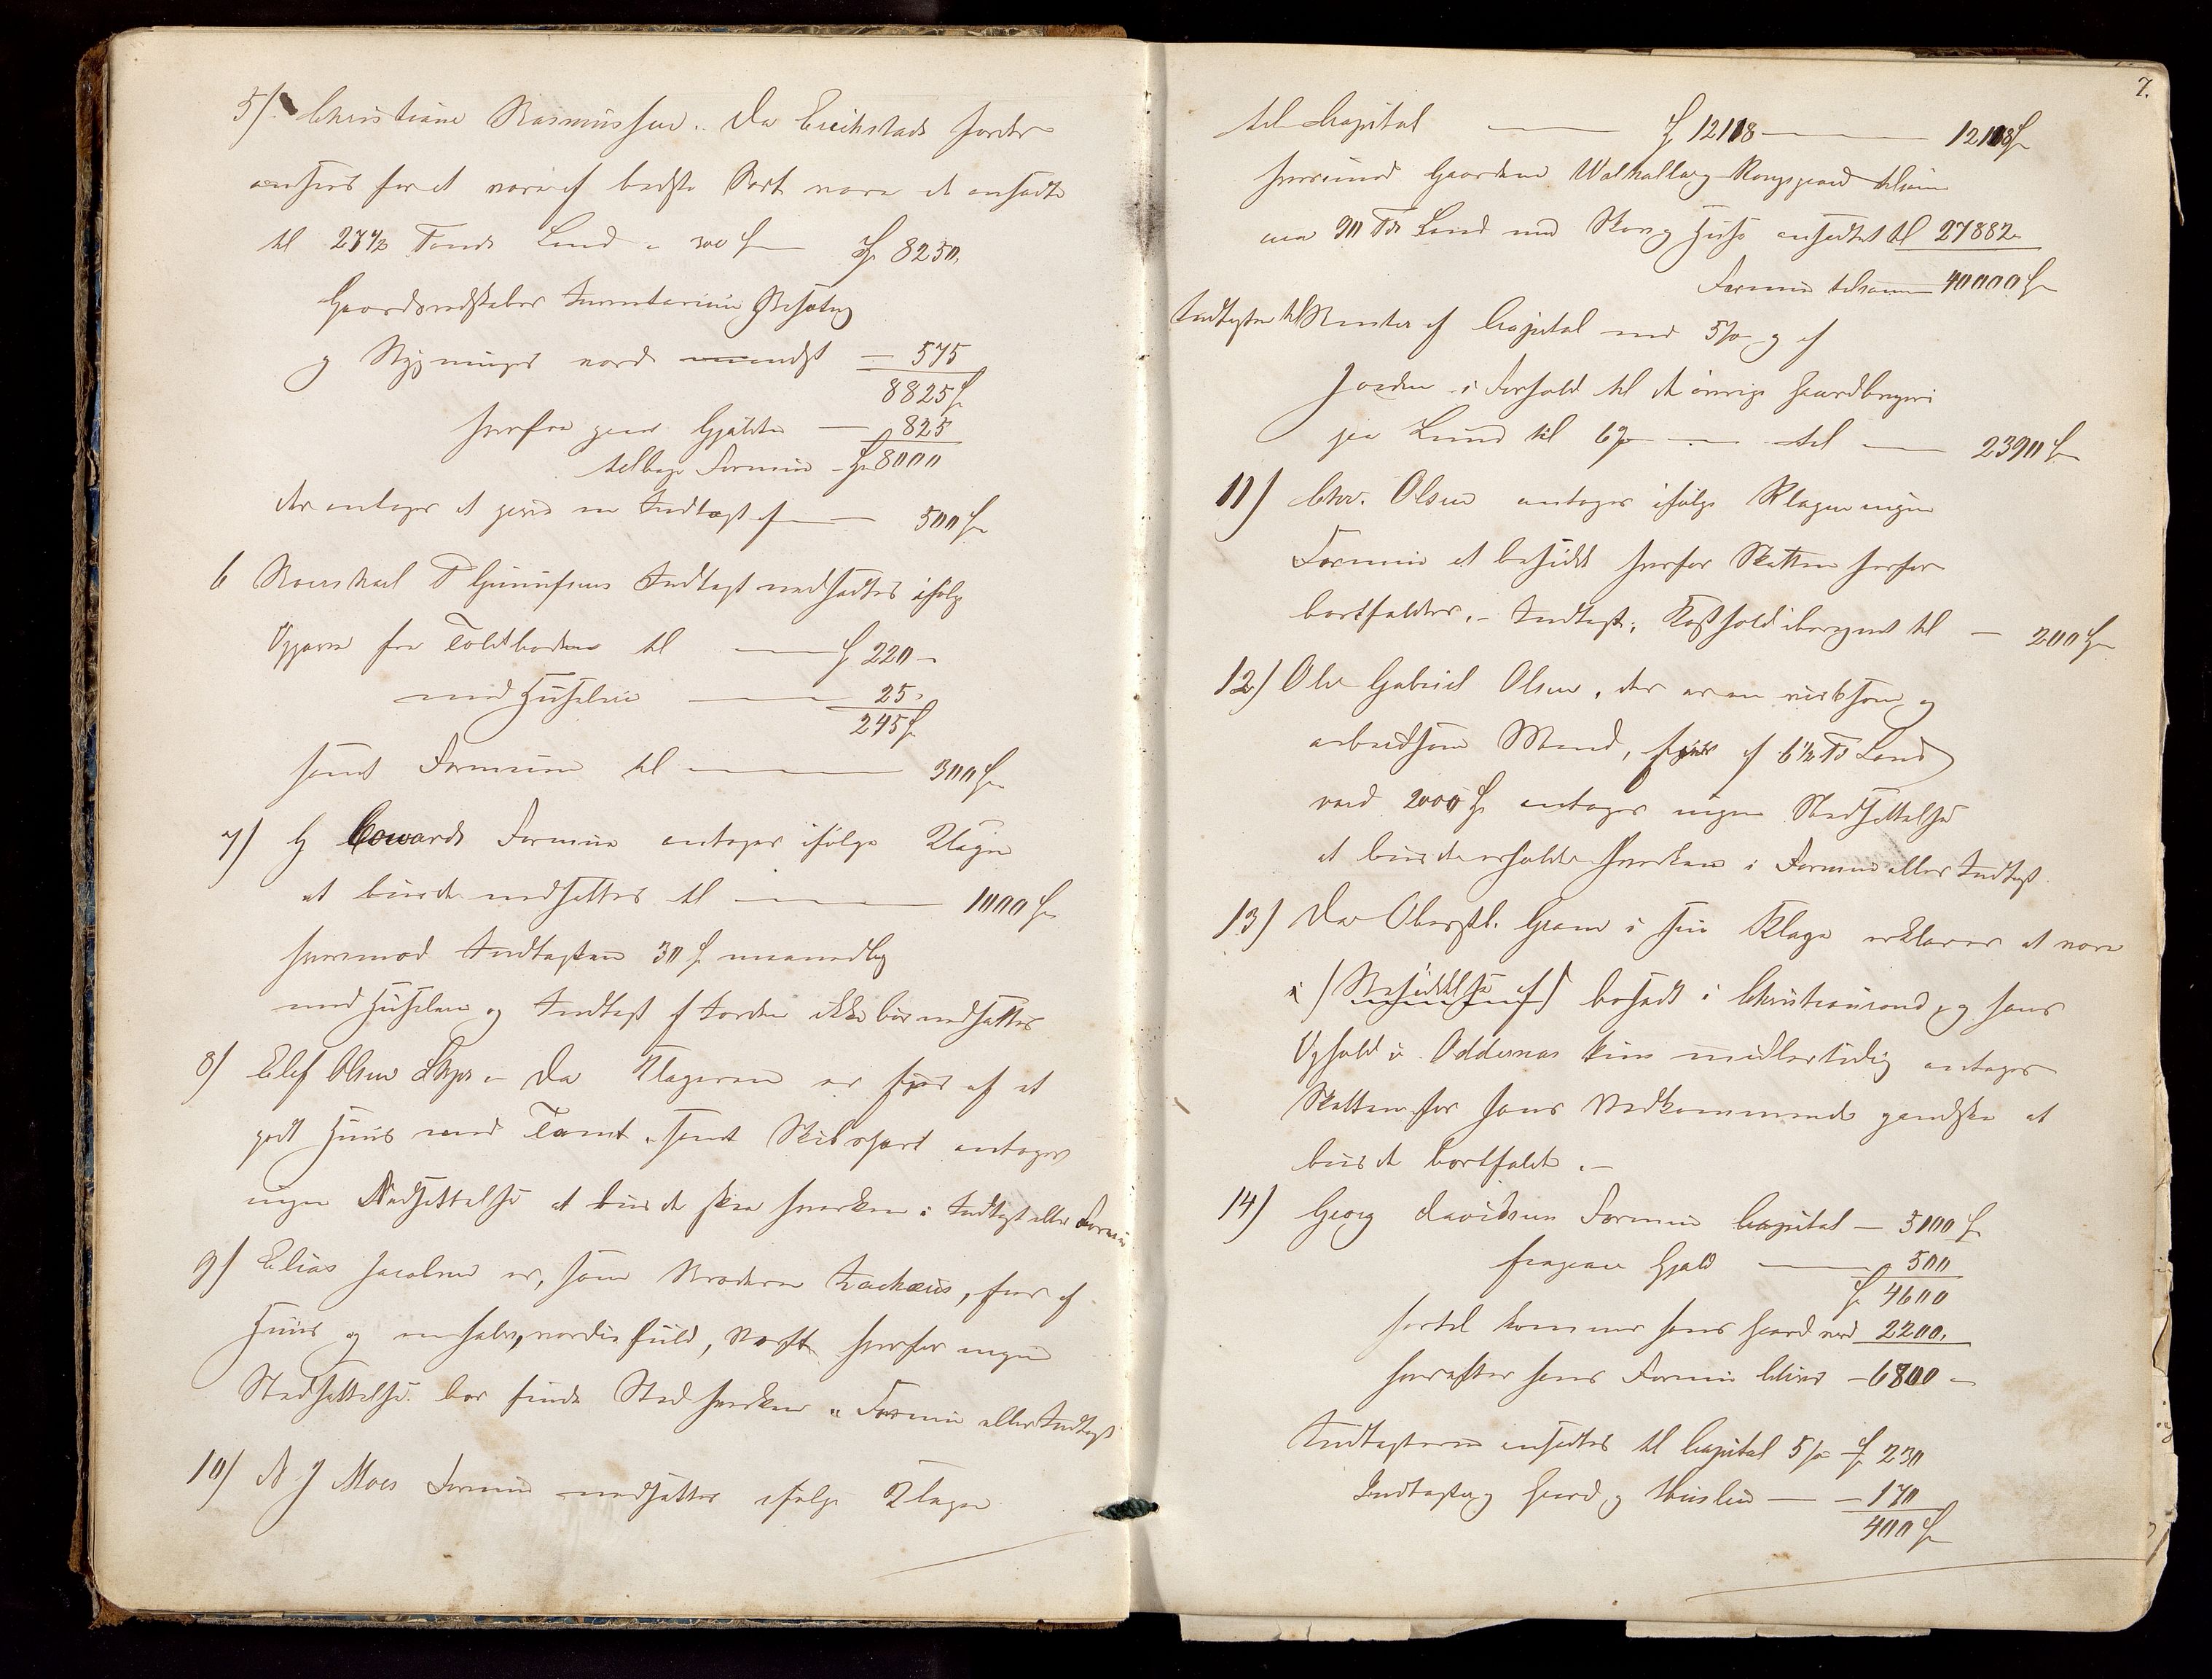 5/. Christiane Rasmussen. Da Eriksstads Jorder
ansees for at være af bedste Sort være at ansætte
til 27½ Tønde Land a 300 Sp 8250.
Gaardsredskaber Inventarium Besætng
og Bygninger værd mindst — 575
8825 Sp
herfra gaar Gjælden — 825
tilbage Formue - Sp 8000
der antages at give en Indtægt af — 500 Sp
6 T Gunufsens Indtægt nedsættes ifølge
Opgave fra Toldboden til — Sp 220 —
med Huusleie — 25.
245 Sp
samt Formuen til — 300 Sp
7) G Cowards Formue antages ifølge Klagen
at burde nedsættes til — 1000 Sp
hvorimod Indtægten 30 Sp maanedlig
med Huusleie og Indtægt af Jorden ikke bør nedsættes
8) Elef Olsen Skpr. — Da Klageren er Ejer af et
godt Huus med Tomt, samt Skibspart antages
ingen Nedsættelse at burde skee hverken i Indtægt eller Formue
9) Elias Jacobsen er, som Broderen Zachæus, Eier af
Huus og en halv, værdiefuld, hvorfor ingen
Nedsættelse bør finde Sted hverken i Formue eller Indtægt
10) N J Moes Formue nedsættes ifølge Klagen
7.
til Capital — Sp 12118 — 12118 Sp
hvorimod Gaardene Walhalla og Kongsgaard tilsam
men 90 Td Land med Skov og Huse ansættes til 27882 —
Formue tilsammen 40000 Sp
Indtægten til Renter af Capital med 5% og af
Jorden i Forhold til de øvrige Gaardbrugere
paa Lund til 6% — til — 2390 Sp
11) Chr. Olsen antages ifølge Klagen ingen
Formue at besidde hvorfor Skatten herfor
bortfalder. — Indtægt, Kosthold iberegnet til — 200 Sp
12) Ole Gabriel Olsen, der er en virksom og
arbeidsom Mand, Ejer af 6½ Td Land
værd 2000 Sp antages ingen Nedsættelse
at burde erholde hverken i Formue eller Indtægt
13) Da Oberstl. Gram i sin Klage erklærer at være
i (Besiddelse af) bosadt i Christianssand, og hans
Ophold i Oddernes kun midlertidig antages
Skatten for hans Vedkommende gandske at
burde bortfalde. —
14) Georg Davidsen Formue Capital — 5100 Sp
fragaaer Gjæld — 500
Sp 4600
hertil kommer hans Gaard værd 2200.
hvorefter hans Formue bliver — 6800 —
Indtægterne ansættes til Capital 5% Sp 230
Indtægt og Gaard og Huusleie — — 170
400 Sp